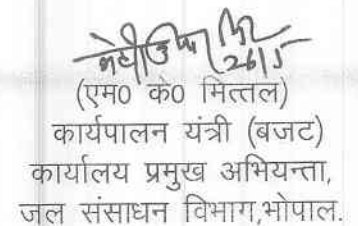 26/5
(एम0 के0 मित्तल)
कार्यपालन यंत्री (बजट)
कार्यालय प्रमुख अभियन्ता,
जल संसाधन विभाग,भोपाल.